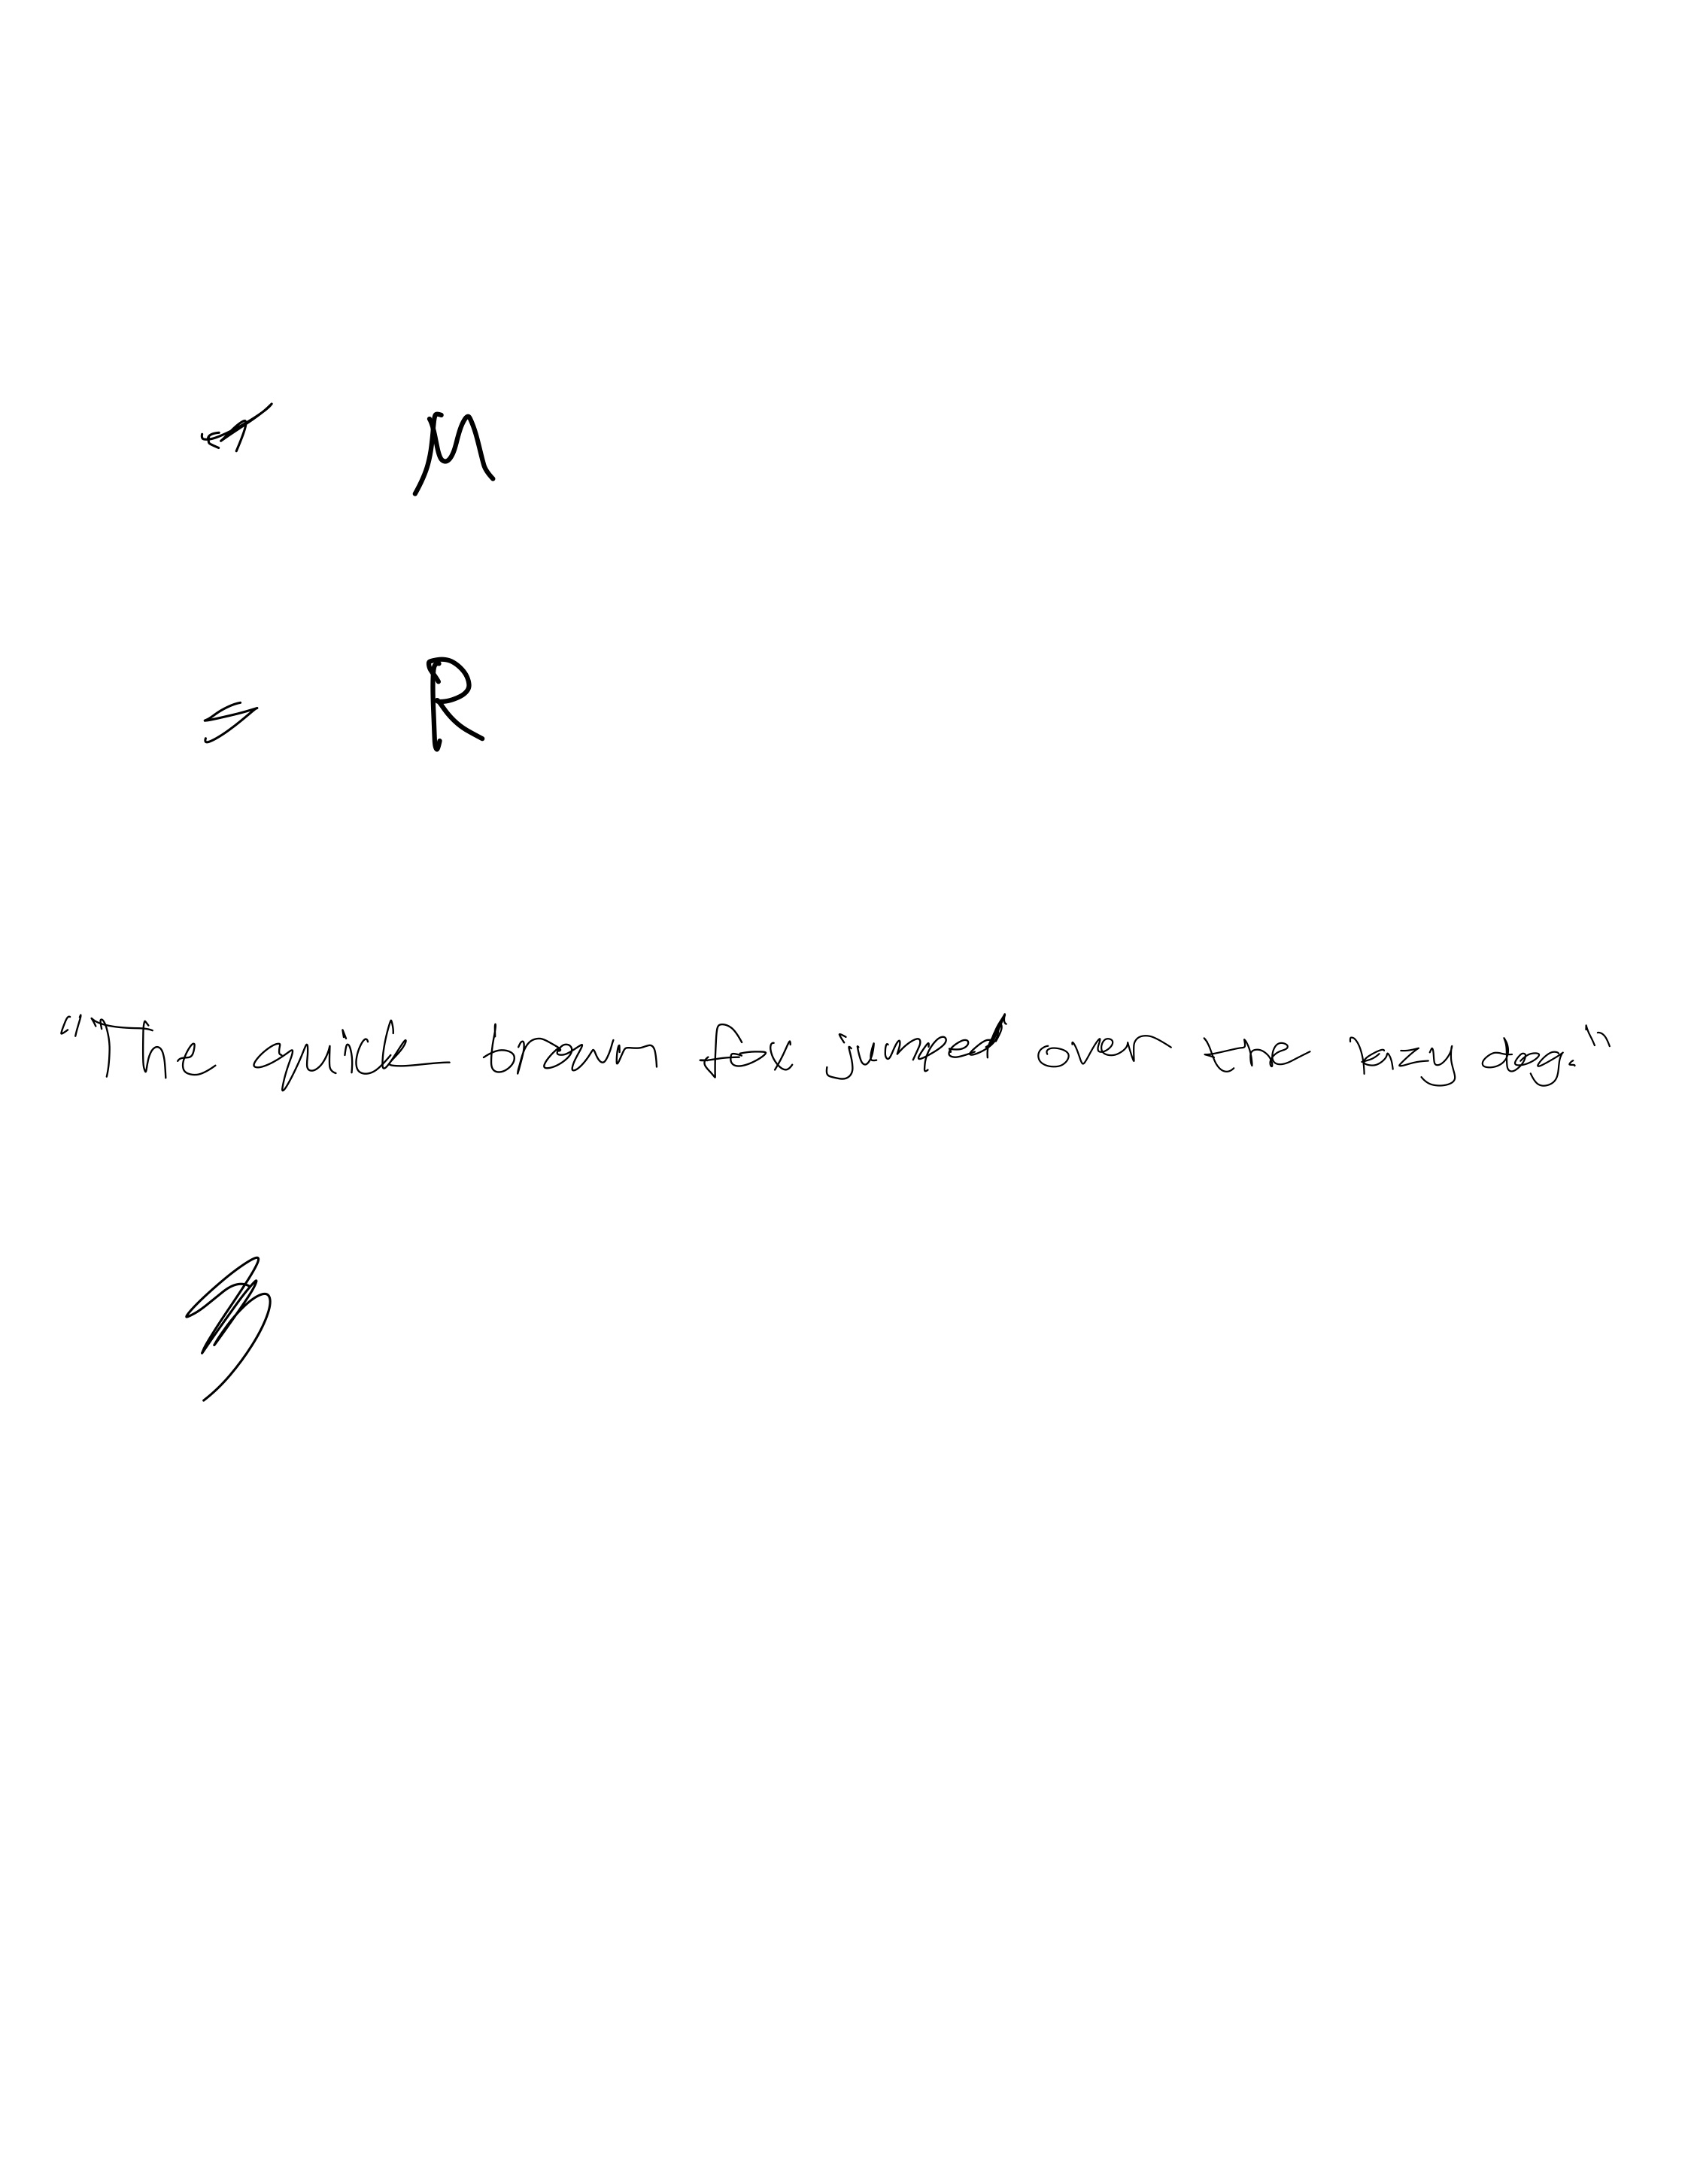 M
R
"The quick brown fox jumped over the lazy dog."